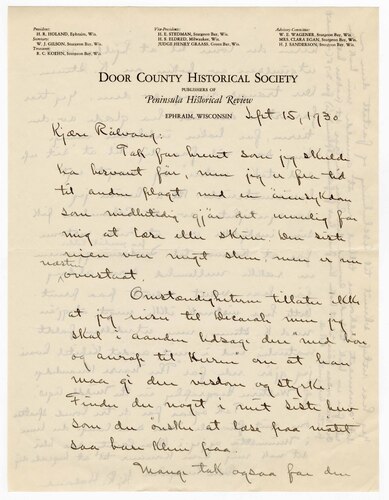 President:
H. R. HOLAND, Ephraim, Wis.
Secretary:
W. J. GILSON, Sturgeon Bay, Wis.
Treasurer:
R. C. KOEHN, Sturgeon Bay, Wis.
Vice-Presidents:
H. E. STEDMAN, Sturgeon Bay, Wis.
H. S. ELDRED, Milwaukee, Wis.
JUDGE HENRY GRAASS, Green Bay, Wis.
Advisory Committee:
W. E. WAGENER, Sturgeon Bay, Wis.
MRS. CLARA EGAN, Sturgeon Bay, Wis.
H. J. SANDERSON, Sturgeon Bay, Wis.
DOOR COUNTY HISTORICAL SOCIETY
PUBLISHERS OF
Peninsula Historical Review
EPHRAIM, WISCONSIN
Sept 15, 1930
Kjære Rölvaag:
Tak for brevet som jeg skulde
ha besvart før, men jeg er fra tid
til anden plaget med en
som midlertidig gjør det umulig for
mig at læse eller skrive. Den siste
var meget slem, men er nu
næsten overstaat
Omstændigheterne tillater ikke
at jeg reiser til Decorah men jeg
skal i aanden
og anrop til Herren om at han
maa gi dem visdom og styrke
Finder du noget i mit siste brev
som du ønsker at læse fra møtet
saa bare klem paa.
Mange tak ogsaa for din